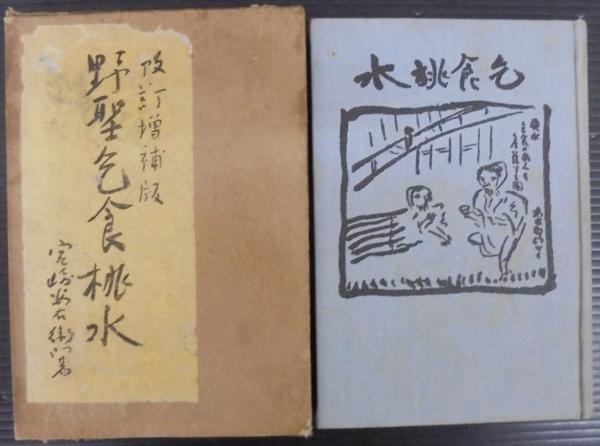 改訂増補版
野聖乞食桃水
宮崎安右衛門著
乞食桃水
桃水